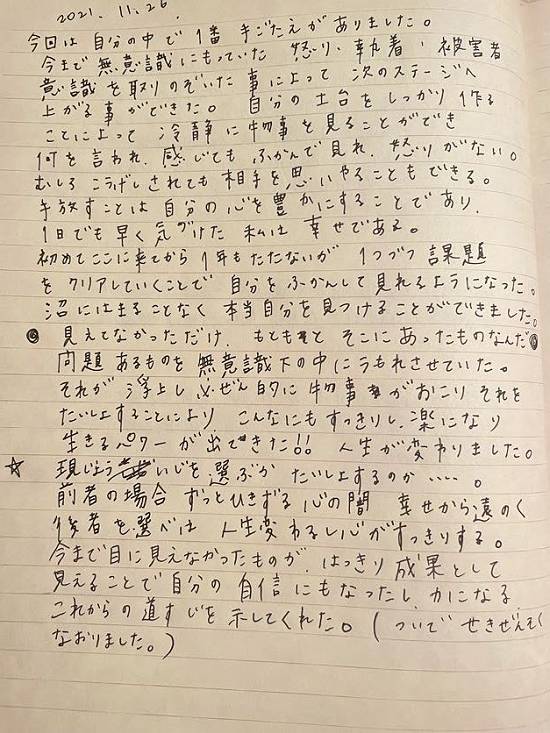 2021. 11. 26.
今回は 自分の中で 1番 手ごたえが ありました。
今まで 無意識 にもっていた 怒り、執着、被害者
意識 を取り のぞいた 事 によって 次のステージへ
上がる 事 ができた。 自分の 土台を しっかり 作る
ことによって 冷静 に 物事 を 見ることができ
何を 言われ、感じても ふかんで 見れ、怒りがない。
むしろ こうげきされても 相手を 思いやることもできる。
手放すことは 自分の 心を 豊かにすることであり、
1日でも 早く 気づけた 私は 幸せである。
初めてここに来てから 1年もたたないが 1つづつ 課題
を クリアしていくことで 自分をふかんして見れるようになった。
沼にはまることなく 本当自分を見つけることができました。
見えてなかっただけ、もともと そこにあったものなんだ
問題 あるものを 無意識下の中にうもれさせていた。
それが 浮上し 必ぜん的に 物事 がおこり それを
たいしょすることにより こんなにもすっきりし、楽になり
生きるパワーが出てきた!! 人生が変わりました。
☆ 現じょう いじを 選ぶか たいしょするのか ‥‥。
前者の場合 ずっとひきずる 心の闇 幸せから遠のく
後者を選べは 人生変わるし心がすっきりする。
今まで目に見えなかったものが、はっきり 成果として
見えることで 自分の 自信 にもなったし、力になる
これからの道すじを 示してくれた。( ついで せきぜんそく
なおりました。)